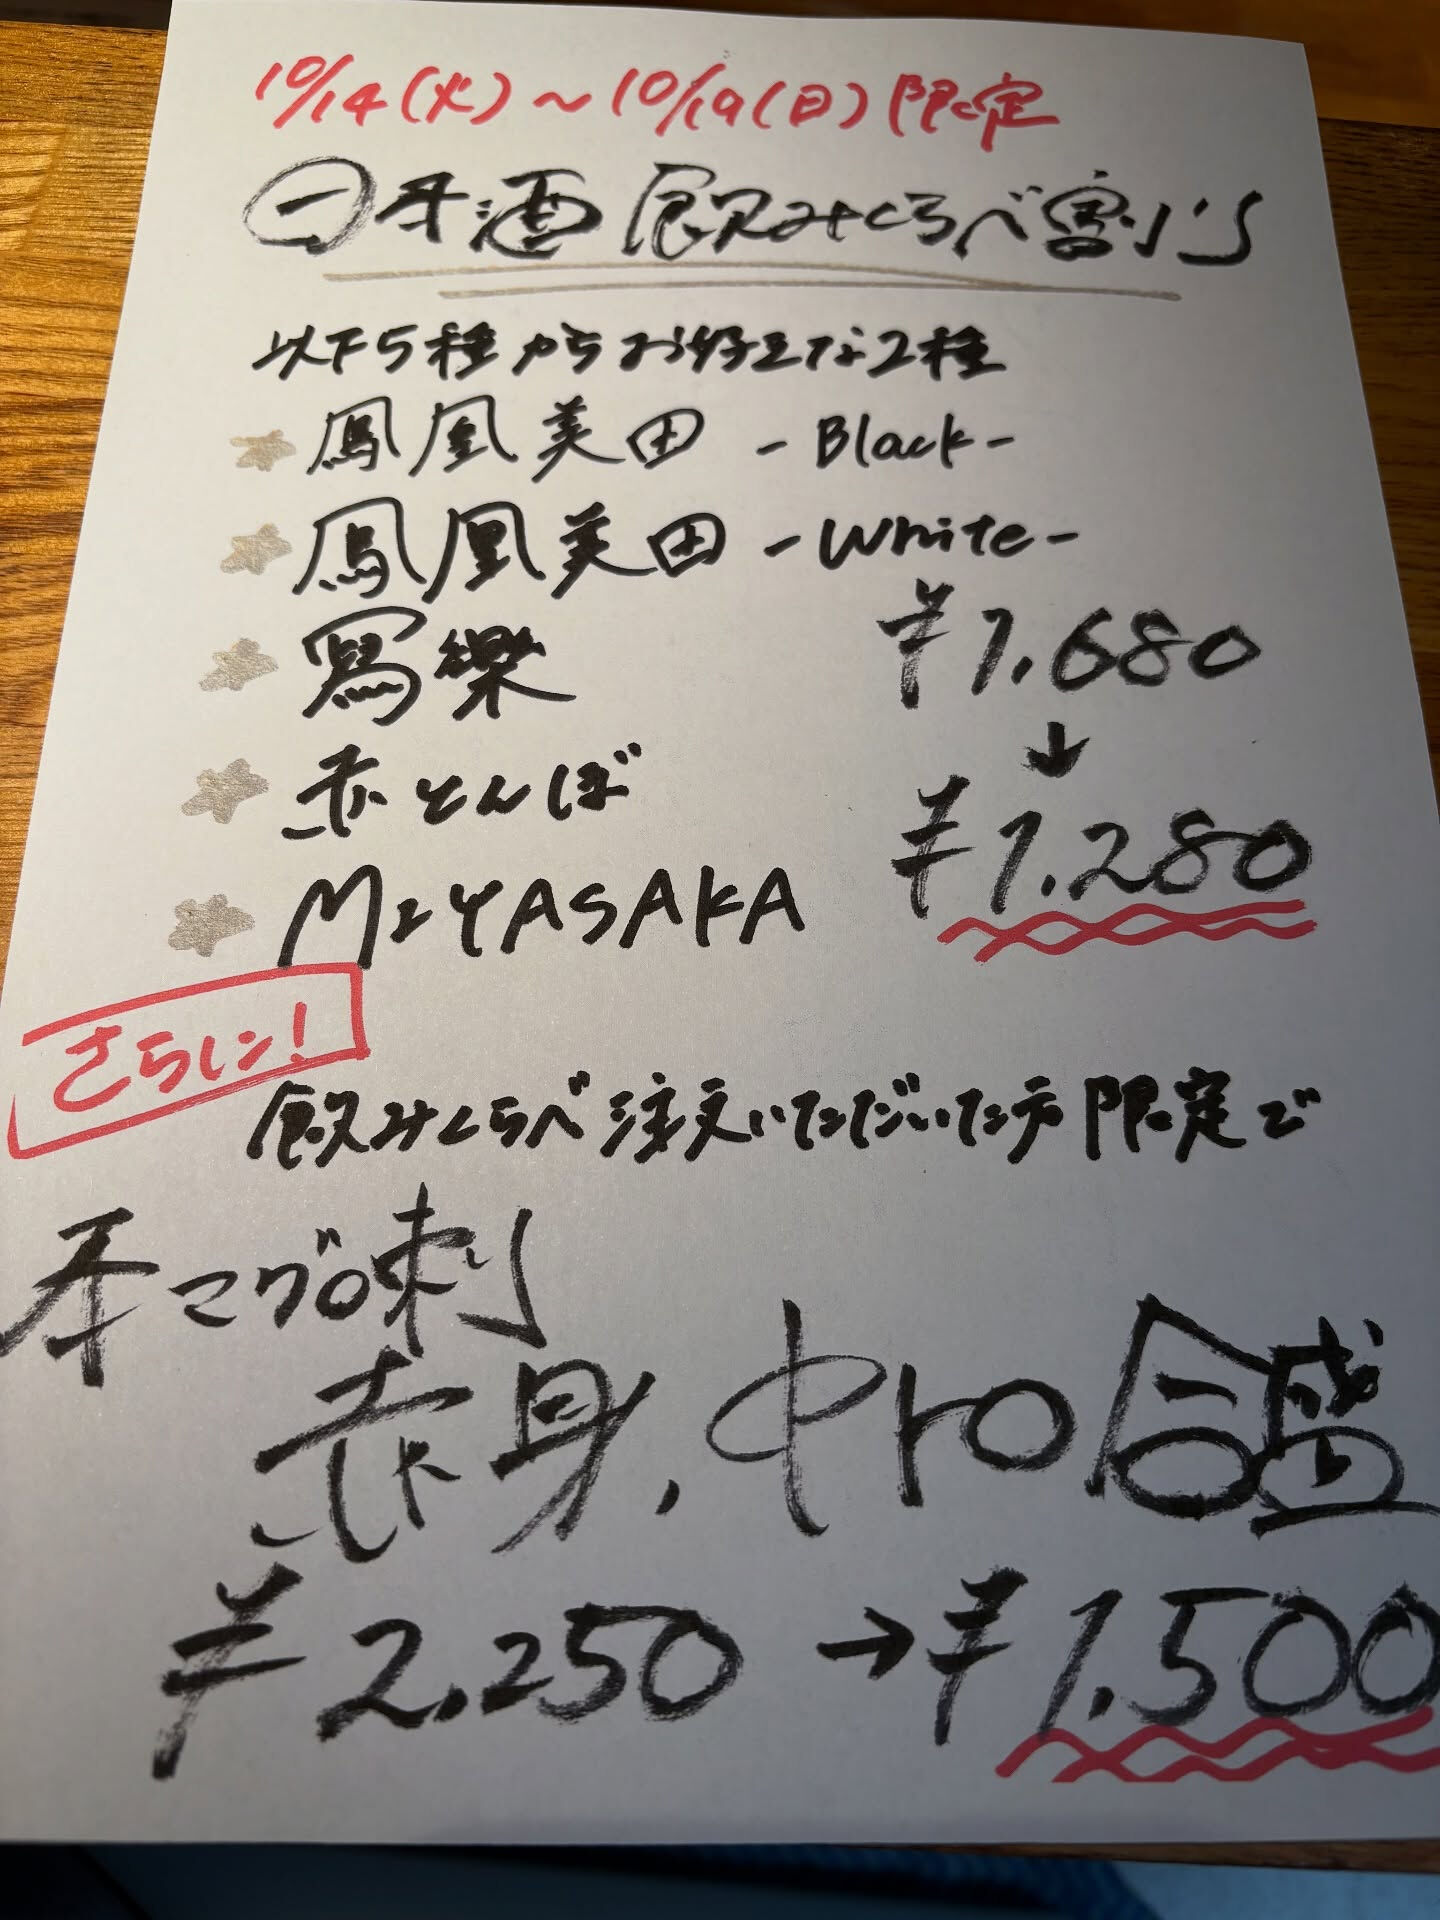 10/14(火)～10/19(日)限定
㊐本酒 飲みくらべ割り
以下5種からお好きな2種
鳳凰美田 -Black-
鳳凰美田 -White-
寫樂
赤とんぼ
MIYASAKA
¥1,680
↓
¥1,280
さらに!
飲みくらべ注文いただいた方限定で
本マグロ刺
赤身、中トロ合盛
¥2,250→¥1,500